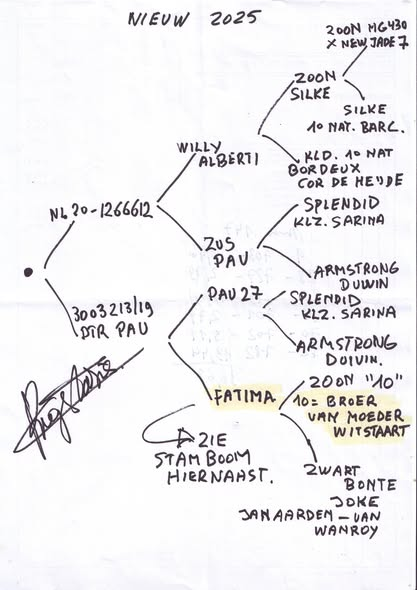 NIEUW 2025
ZOON MG430
X NEW JADE 7
ZOON
SILKE
SILKE
10 NAT. BARC.
WILLY
ALBERTI
KLD. 10 NAT
BORDEUX
COR DE HEIJDE
NL 20-1266612
SPLENDID
KLZ. SARINA
ZUS
PAU
ARMSTRONG
DUIVIN
PAU 27
SPLENDID
KLZ. SARINA
3003213/19
DTR PAU
ARMSTRONG
DUIVIN.
FATIMA
ZOON "10"
10= BROER
VAN MOEDER
WITSTAART
ZIE
STAMBOOM
HIERNAAST.
ZWART
BONTE
JOKE
JAN AARDEN - VAN
WANROY